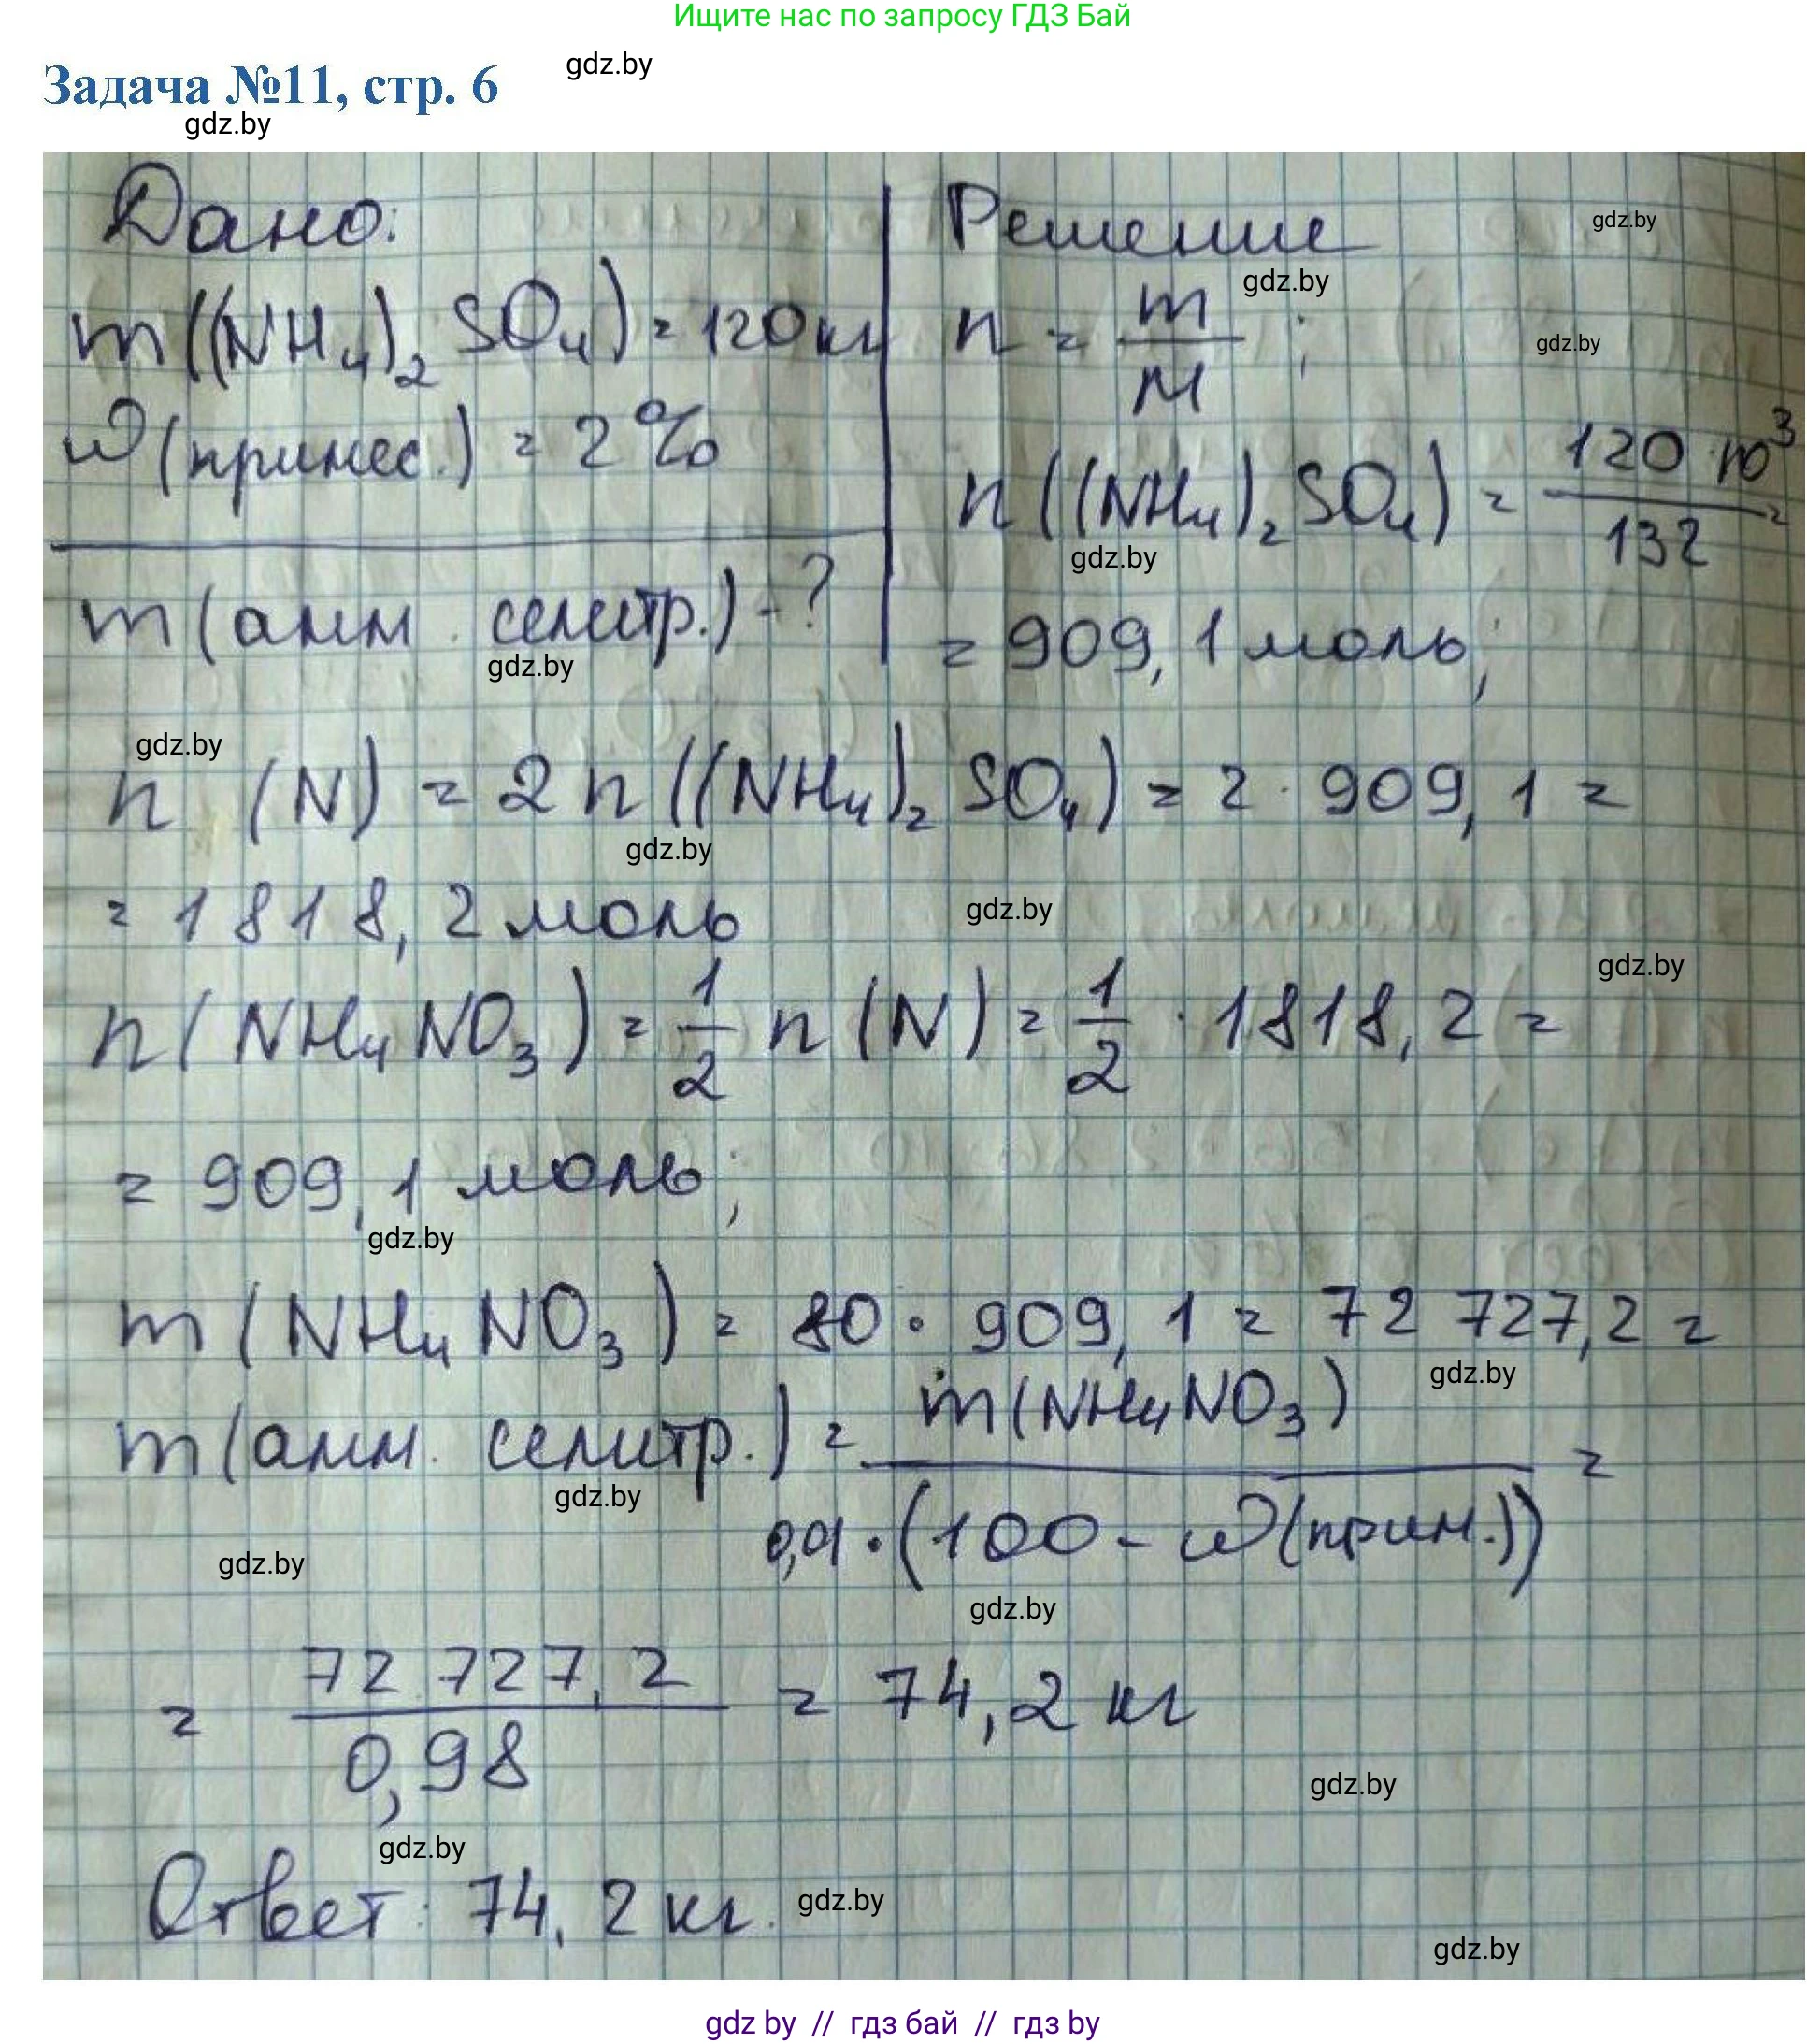 Ищите нас по запросу ГДЗ Бай
gdz.by
Задача №11, стр. 6
gdz.by
Дано:
Решение
gdz.by
gdz.by
m((NH₄)₂SO₄) = 120 кг
n = m/M ;
gdz.by
ω(примес.) = 2%
n((NH₄)₂SO₄) = 120·10³/132 =
gdz.by
m(амм. селитр.) - ?
= 909,1 моль;
gdz.by
gdz.by
n (N) = 2n((NH₄)₂SO₄) = 2·909,1 =
gdz.by
= 1818,2 моль
gdz.by
gdz.by
n(NH₄NO₃) = 1/2 n(N) = 1/2 · 1818,2 =
= 909,1 моль;
gdz.by
m(NH₄NO₃) = 80·909,1 = 72 727,2 =
gdz.by
m(амм. селитр.) = m(NH₄NO₃)/0,01·(100-ω(прим.)) =
gdz.by
gdz.by
gdz.by
= 72 727,2/0,98 = 74,2 кг
gdz.by
gdz.by
Ответ: 74,2 кг.
gdz.by
gdz.by
gdz by // гдз бай // гдз by